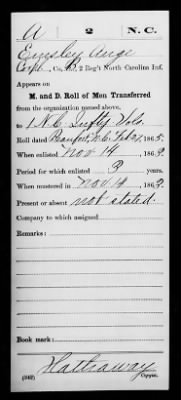 A 2 N.C.
Emsley Ange
Corpl., Co. , 2 Reg't North Carolina Inf.
Appears on
M. and D. Roll of Men Transferred
from the organization named above,
to 1 N.C. Inftry Vols.
Roll dated Beaufort, N.C. Feb 1865.
When enlisted Nov 14, 1863.
Period for which enlisted 3 years.
When mustered in Nov 14, 1863.
Present or absent not stated.
Company to which assigned
Remarks:
Book mark:
Hathaway
(362) Copyist.